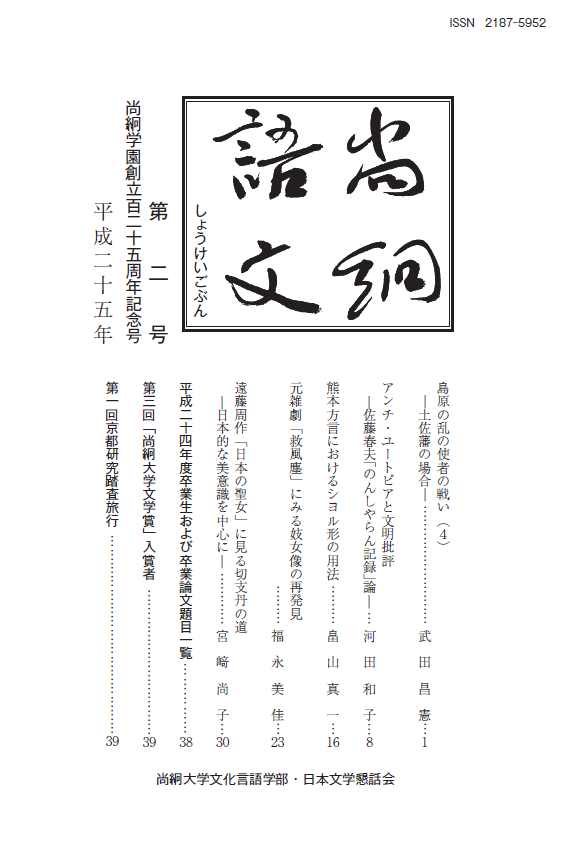 ISSN 2187-5952
尚絅
語文
しょうけいごぶん
第二号
尚絅学園創立百二十五周年記念号
平成二十五年
島原の乱の使者の戦い（４）
―土佐藩の場合―……………………武田昌憲…1
アンチ・ユートピアと文明批評
―佐藤春夫「のんしやらん記録」論―…河田和子…8
熊本方言におけるシヨル形の用法………畠山真一…16
元雑劇「救風塵」にみる妓女像の再発見
………福永美佳…23
遠藤周作「日本の聖女」に見る切支丹の道
―日本的な美意識を中心に―…………宮﨑尚子…30
平成二十四年度卒業生および卒業論文題目一覧……………38
第三回「尚絅大学文学賞」入賞者……………………………39
第一回京都研究踏査旅行………………………………………39
尚絅大学文化言語学部・日本文学懇話会